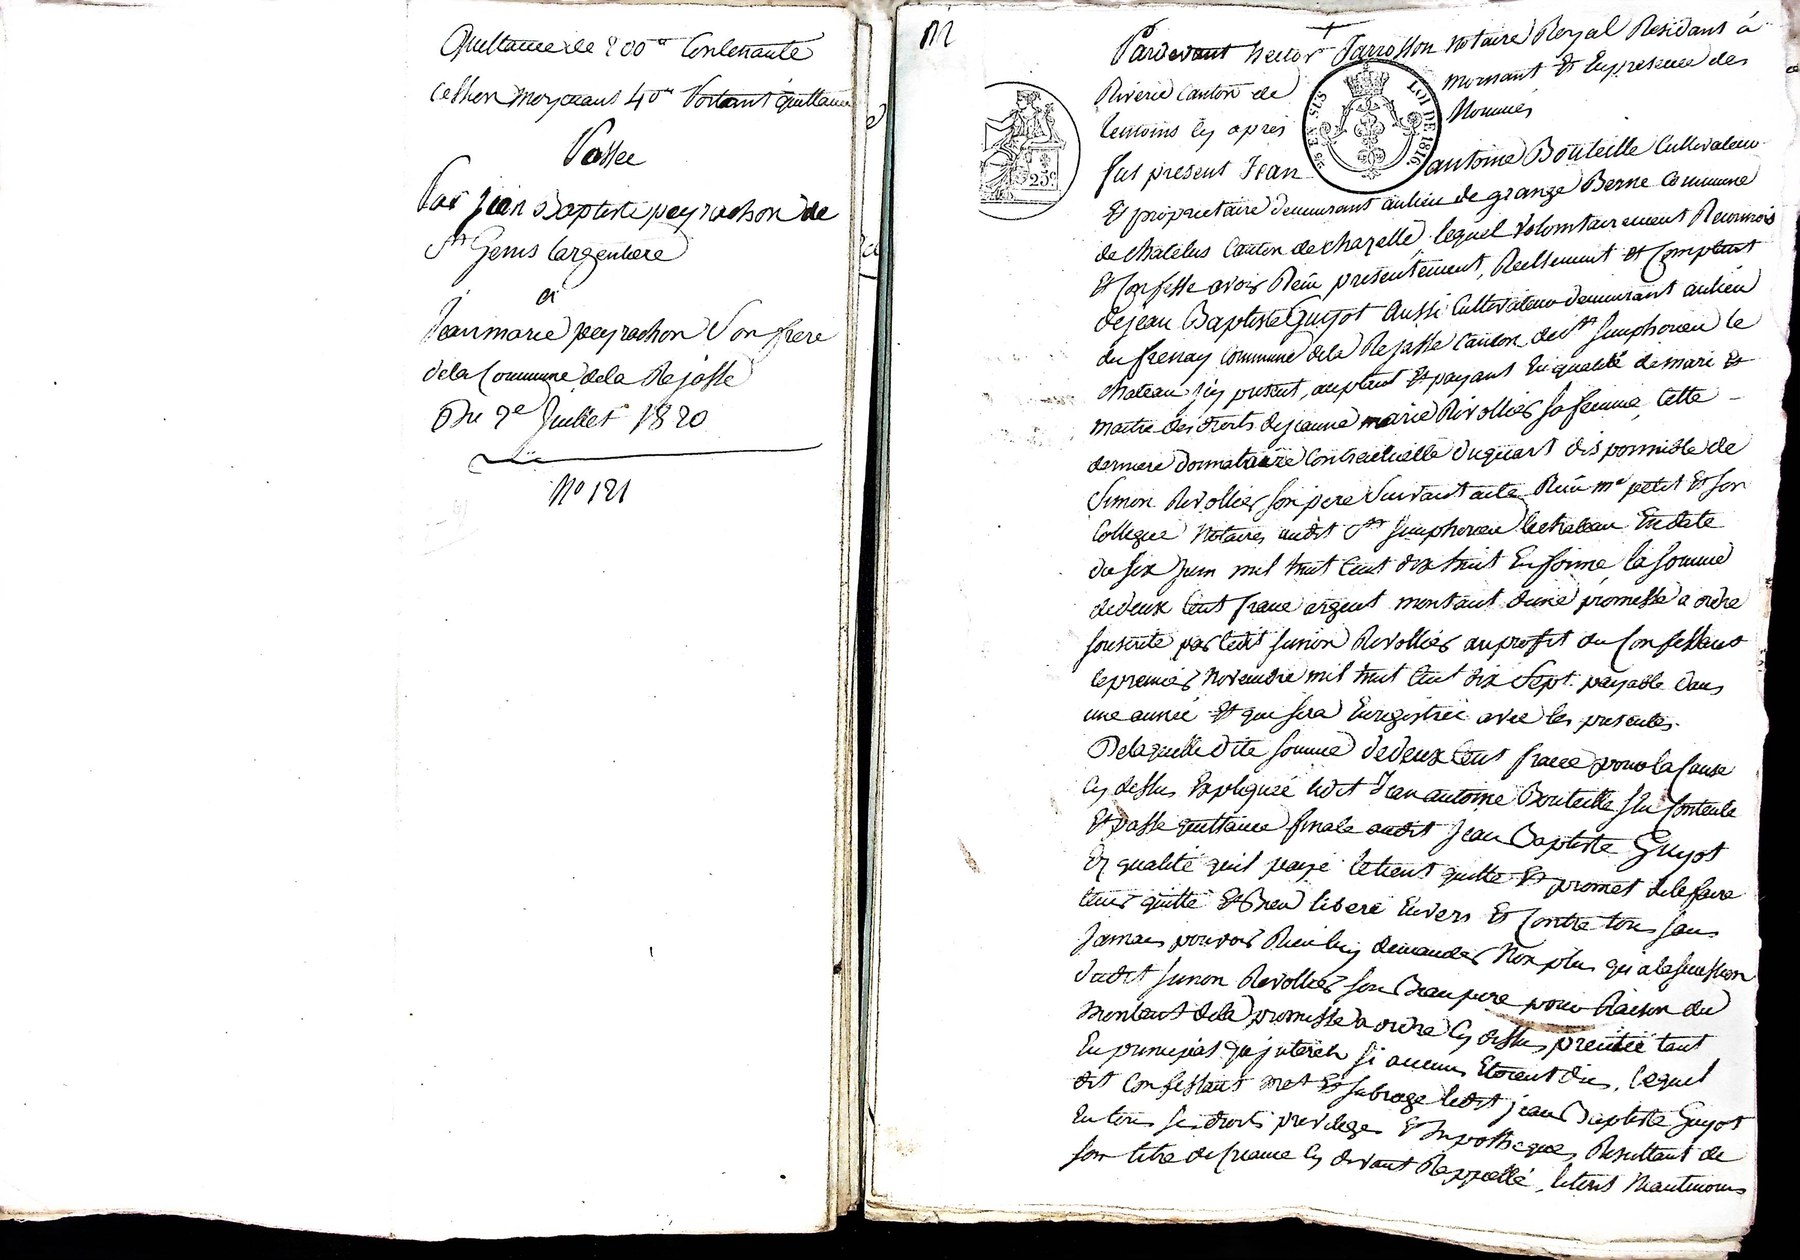 Quittance de 200ᶠʳ Contenante
Cession moyenant 40ᶠʳ Portant quittance
Passée
Par Jean Baptiste peyrachon de
Sᵗ Genis largentiere
a
Jean marie peyrachon Son frere
de la Commune de la Rejasse
Du 2ᵉ Juillet 1820
Nº 121
Pardevant hector Tarrosson Notaire Royal Residant à
Riverie Canton de mornant Et En presence des
temoins Cy après Nommés
25 EN SUS LOI DE 1816
25ᶜ
fut present Jean antoine Bouteille Cultivateur
Et propriétaire demeurant au lieu de grange Berne Commune
de chatelus Canton de chazelle, lequel volontairement Reconnois
Et Confesse avoir Reçu presentement, Reellement Et Comptant
de jean Baptiste Guyot aussi Cultivateur demeurant au lieu
du frenay Commune de la Rejasse Canton de Sᵗ Simphorien le
chateau Icy present, acceptant Et payant En qualité de mari Et
maitre des droits de jeanne marie Rivollier sa femme, Cette
derniere donnataire Contractuelle du quart disponnible de
Simon Rivollier son pere Suivant acte Reçu mᵉ petit Et son
Collegue Notaires audit Sᵗ Simphorien le chateau En date
du six Juin mil huit Cent dix huit En forme, la Somme
de deux Cent franc argent montant d'une promesse a ordre
souscrite par ledit Simon Rivollier au profit du Confessant
le premier Novembre mil huit Cent dix Sept. payable dans
une année Et qui sera Enregistrée avec les presentes.
De laquelle dite somme de deux Cent franc pour la Cause
Cy dessus Expliquée ledit Jean antoine Bouteille s'En Contente
Et passe quittance finale audit Jean Baptiste Guyot
En qualité quil paye le tient quitte Et promet de le faire
tenir quitte Et Bien liberé Envers Et Contre tous sans
Jamais pouvoir Rien luy demander Non plus qu'a la succession
dudit Simon Rivollier son Beau pere pour Raison du
montant de la promesse a ordre Cy dessus precitée tant
En principal qu'interets si aucuns Etoient dus, lequel
dit Confessant met Et subroge ledit jean Baptiste Guyot
En tous ses droits privileges Et hypotheques Resultant de
son titre de creance Cy devant Rappellé, le tout Neantmoins